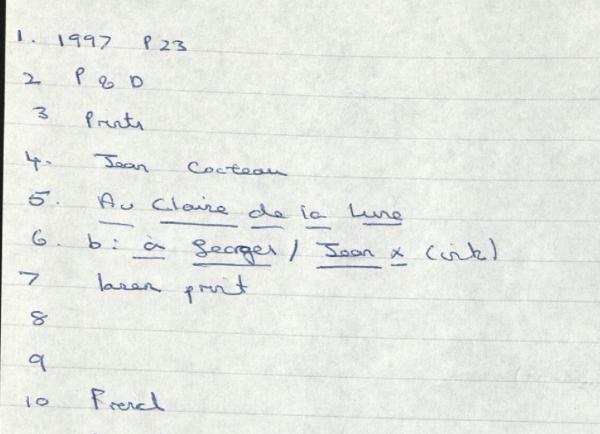 1. 1997 P23
2 P & D
3 Prints
4. Jean Cocteau
5. Au Claire de la Lune
6. b: à Georges / Jean x (ink)
7 laser print
8
9
10 French